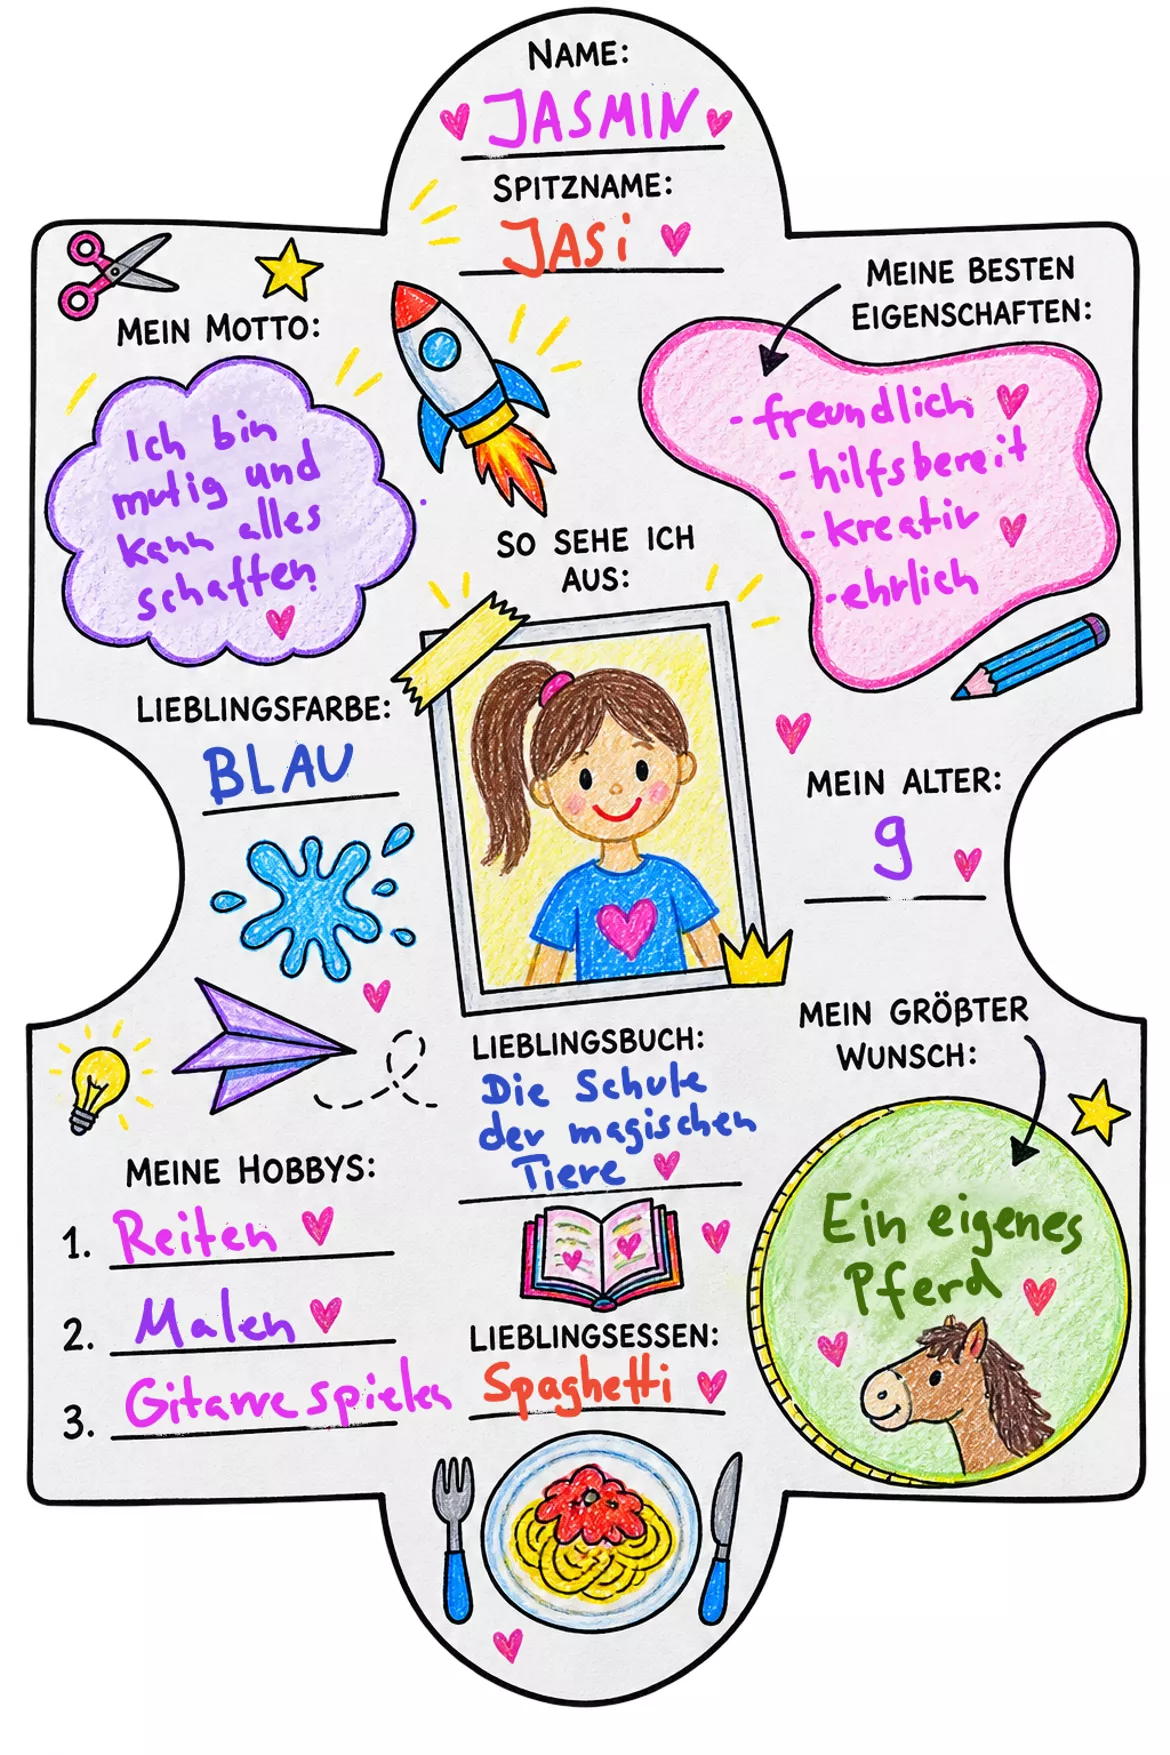 NAME:
JASMIN
SPITZNAME:
JASi
MEIN MOTTO:
Ich bin
mutig und
kann alles
schaffen
MEINE BESTEN
EIGENSCHAFTEN:
- freundlich
- hilfsbereit
- kreativ
- ehrlich
SO SEHE ICH
AUS:
LIEBLINGSFARBE:
BLAU
MEIN ALTER:
9
LIEBLINGSBUCH:
Die Schule
der magischen
Tiere
MEIN GRÖßTER
WUNSCH:
Ein eigenes
Pferd
MEINE HOBBYS:
1. Reiten
2. Malen
3. Gitarre spielen
LIEBLINGSESSEN:
Spaghetti